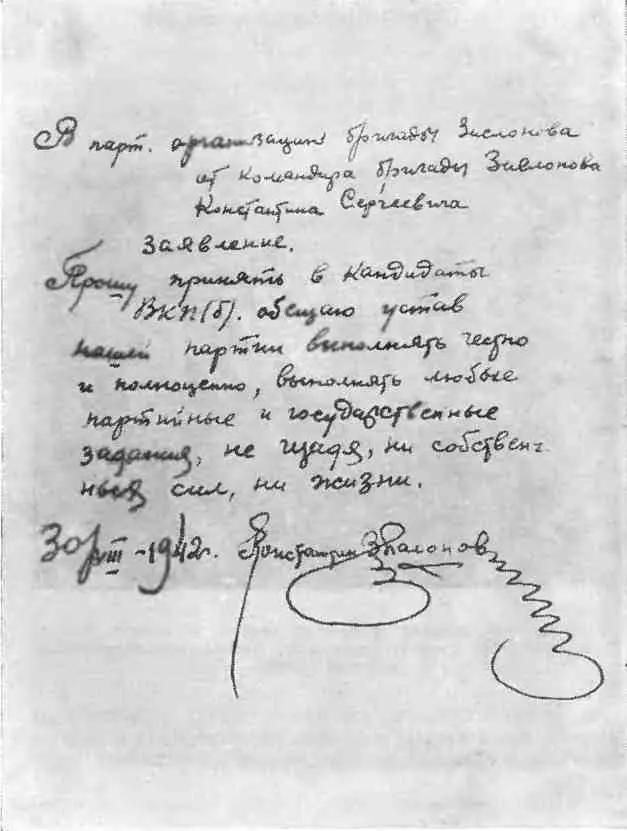 В парт. организацию бригады Заслонова
от командира бригады Заслонова
Константина Сергеевича
Заявление.
Прошу принять в кандидаты
ВКП(б). обещаю устав
нашей партии выполнять честно
и полноценно, выполнять любые
партийные и государственные
задания, не щадя, ни собствен-
ных сил, ни жизни.
30/VIII-1942г. Константин Заслонов